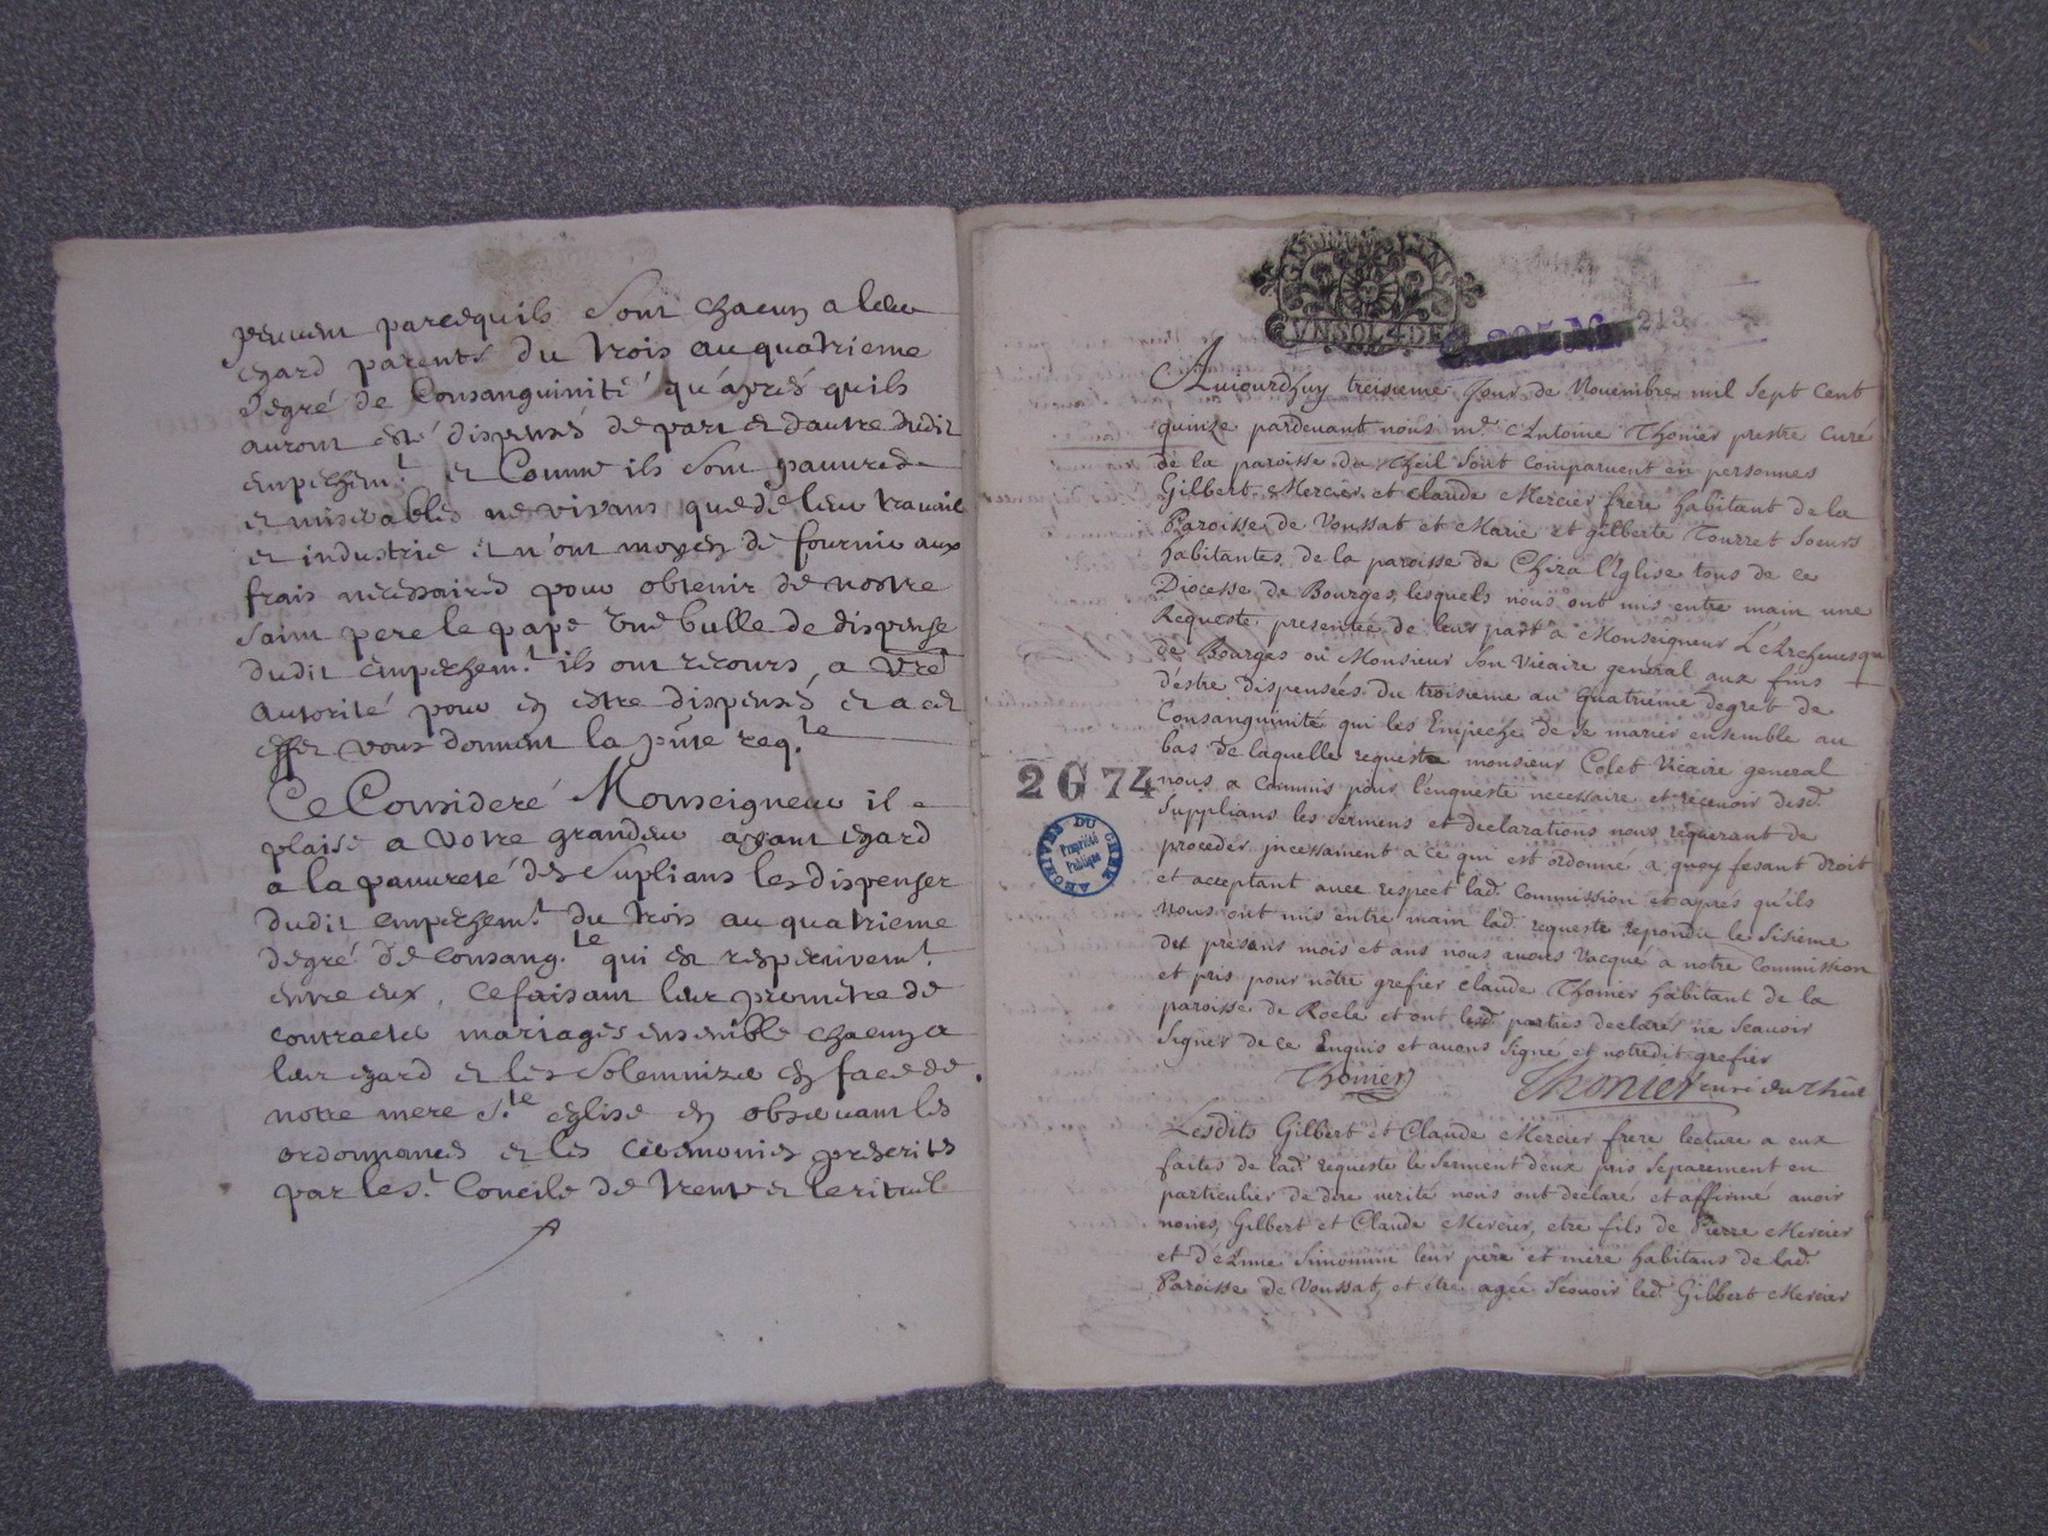 peuvent parcequils sont chacun a leur
egard parents du trois au quatrieme
degré de Consanguinité qu'aprés quils
auront esté dispensés de part et dautre dudit
empéchem.t et Comme ils sont pauvres
et miserables ne vivans que de leur travail
et industrie et n'ont moyen de fournir aux
frais nécessaires pour obtenir de nostre
saint pere le pape une bulle de dispense
dudit empechem.t ils ont recours a vre
autorité pour en estre dispensés et a cet
effet vous donnent la pnte req.te
Ce Consideré Monseigneur il
plaise a votre grandeur ayant egard
a la pauvreté des suplians les dispenser
dudit empechem.t du trois au quatrieme
degré de consang.te qui est respectivem.t
entre eux, ce faisant leur promettre de
contracter mariages ensemble chacun a
leur egard et les solemnizer en face de
notre mere s.te eglise en observant les
ordonnances et les ceremonies prescrits
par le s.t Concile de trente et le rituel
VNSOL4DE
213
Aujourdhuy treisieme jour de Novembre mil sept cent
quinze pardevant nous m.e Antoine Thonier prestre curé
de la paroisse du Theil sont comparuent en personnes
Gilbert Mercier et claude Mercier frere habitant de la
Paroisse de Voussat et Marie et gilberte Tourret soeurs
habitantes de la paroisse de Chiza l'Eglise tous de ce
Diocesse de Bourges, lesquels nous ont mis entre main une
Requeste presentée de leur part a Monseigneur L'Archevesque
de Bourges où Monsieur son Vicaire general aux fins
destre dispensées du troisieme au quatriéme degret de
Consanguinité qui les Empeche de se marier ensemble au
bas de laquelle requeste monsieur Colet Vicaire general
2 G 74
nous a commis pour l'enqueste necessaire et recevoir desd.
Supplians les sermens et declarations nous requerant de
proceder incessament a ce qui est ordonné a quoy fesant droit
et acceptant avec respect lad. Commission et aprés qu'ils
nous ont mis entre main lad. requeste repondue le sisieme
des presans mois et ans nous avons vacqué a notre Commission
et pris pour nôtre grefier claude Thonier habitant de la
paroisse de Rocle et ont lesd. parties declaré ne scavoir
signer de ce Enquis et avons signé et notredit grefier
Thonier Thonier curé du theil
Lesdits Gilbert et Claude Mercier frere lecture a eux
faites de lad. requeste le serment deux pris separement en
particulier de dire verité nous ont declaré et affirmé avoir
noms, Gilbert et Claude Mercier, etre fils de Pierre Mercier
et d'Anne Simonnin leur pere et mere habitans de lad.
Paroisse de Voussat, et être agée scavoir led. Gilbert Mercier
ARCHIVES DU CHER
Propriété
Publique